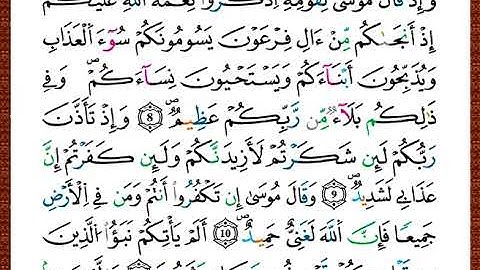 وَإِذْ قَالَ مُوسَىٰ لِقَوْمِهِ اذْكُرُوا نِعْمَةَ اللَّهِ عَلَيْكُمْ
إِذْ أَنجَىٰكُم مِّنْ ءَالِ فِرْعَوْنَ يَسُومُونَكُمْ سُوٓءَ ٱلْعَذَابِ
وَيُذَبِّحُونَ أَبْنَآءَكُمْ وَيَسْتَحْيُونَ نِسَآءَكُمْ ۚ وَفِى
ذَٰلِكُم بَلَآءٌ مِّن رَّبِّكُمْ عَظِيمٌ ۝8 وَإِذْ تَأَذَّنَ
رَبُّكُمْ لَئِن شَكَرْتُمْ لَأَزِيدَنَّكُمْ وَلَئِن كَفَرْتُمْ إِنَّ
عَذَابِى لَشَدِيدٌ ۝9 وَقَالَ مُوسَىٰٓ إِن تَكْفُرُوٓا۟ أَنتُمْ وَمَن فِى ٱلْأَرْضِ
جَمِيعًا فَإِنَّ ٱللَّهَ لَغَنِىٌّ حَمِيدٌ ۝10 أَلَمْ يَأْتِكُمْ نَبَؤُا۟ ٱلَّذِينَ